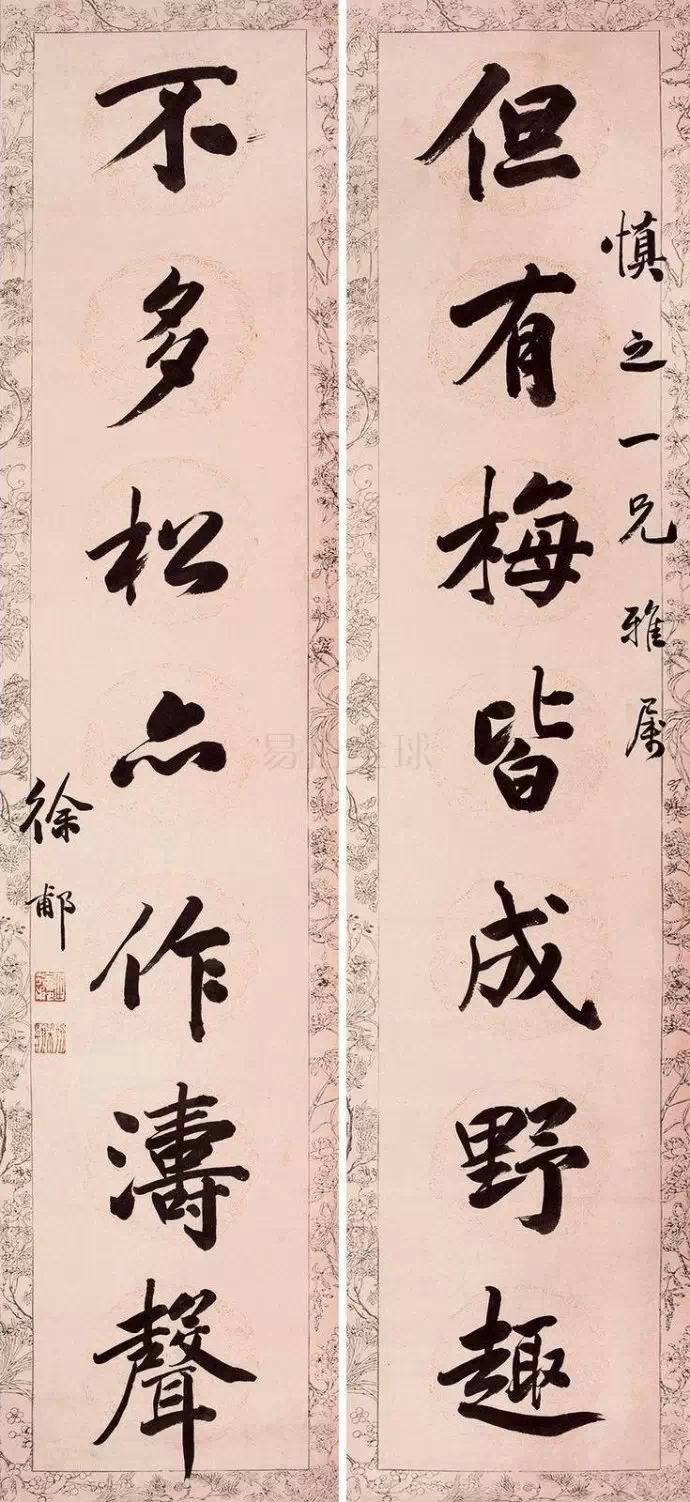 慎之一兄雅属
但有梅皆成野趣
不多松亦作濤聲
徐郙